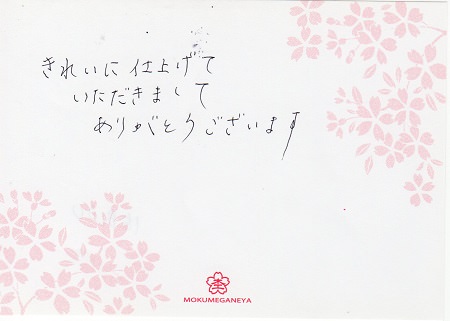 きれいに仕上げて
いただきまして
ありがとうございます
MOKUMEGANEYA